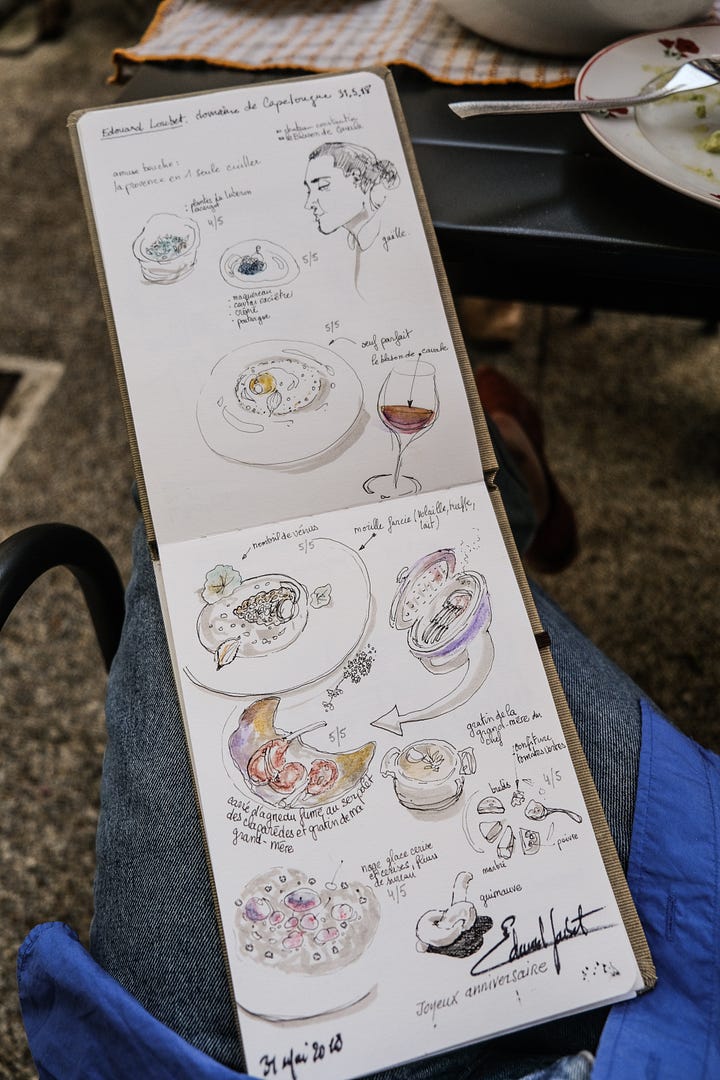 Edouard Loubet. domaine de Capelongue 31,5,18
le Blason de Cavale
amuse bouche :
la provence en 1 seule cuiller
: plantes du luberon
4/5
gaëlle.
5/5
· maquereau
· caviar osciètre
· crème
· poutargue
5/5
œuf parfait
le blason de cavale
nombril de vénus
5/5
morille farcie (volaille, truffe,
lait)
5/5
gratin de la
grand-mère du
chef
confiture
tomates vertes
4/5
brebis
poivre
carré d'agneau fumé au serpolet
des claparèdes et gratin de ma
grand-mère
nage glace cerise
et cerises, fleurs
de sureau
4/5
guimauve
Edouard Loubet
Joyeux anniversaire
31 Mai 2018